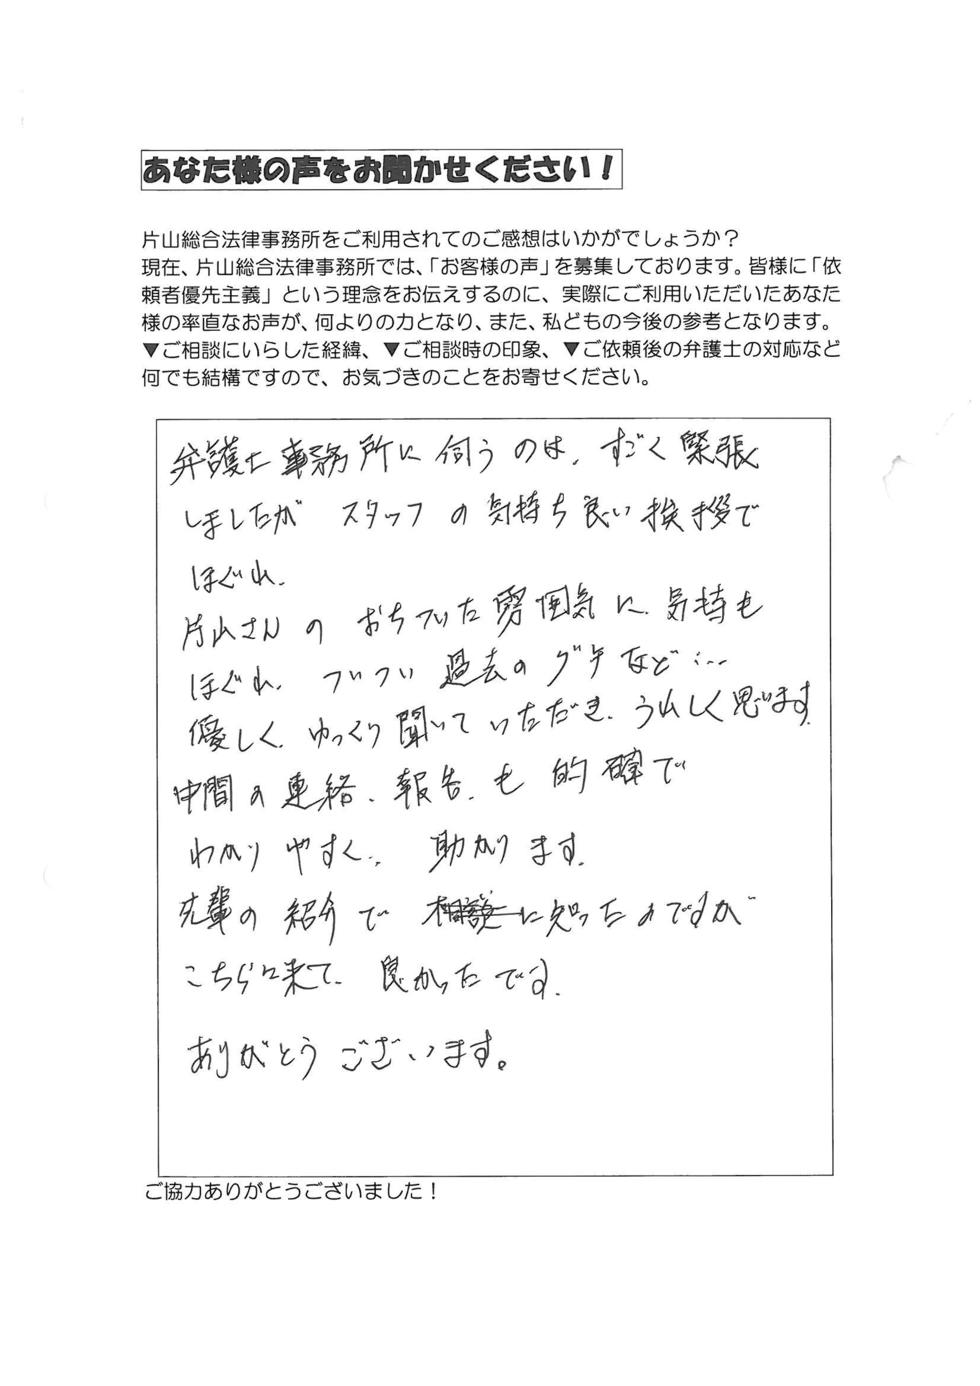 あなた様の声をお聞かせください！
片山総合法律事務所をご利用されてのご感想はいかがでしょうか？
現在、片山総合法律事務所では、「お客様の声」を募集しております。皆様に「依
頼者優先主義」という理念をお伝えするのに、実際にご利用いただいたあなた
様の率直なお声が、何よりの力となり、また、私どもの今後の参考となります。
▼ご相談にいらした経緯、▼ご相談時の印象、▼ご依頼後の弁護士の対応など
何でも結構ですので、お気づきのことをお寄せください。
弁護士事務所に伺うのは、すごく緊張
しましたが スタッフの気持ち良い挨拶で
ほぐれ、
片山さんの おちついた雰囲気に、気持も
ほぐれ、ついつい過去のグチなど…
優しく、ゆっくり聞いていただき、うれしく思います
中間の連絡、報告、も的確で
わかりやすく、助かります。
先輩の紹介で 相談に知ったのですが
こちらに来て、良かったです。
ありがとうございます。
ご協力ありがとうございました！